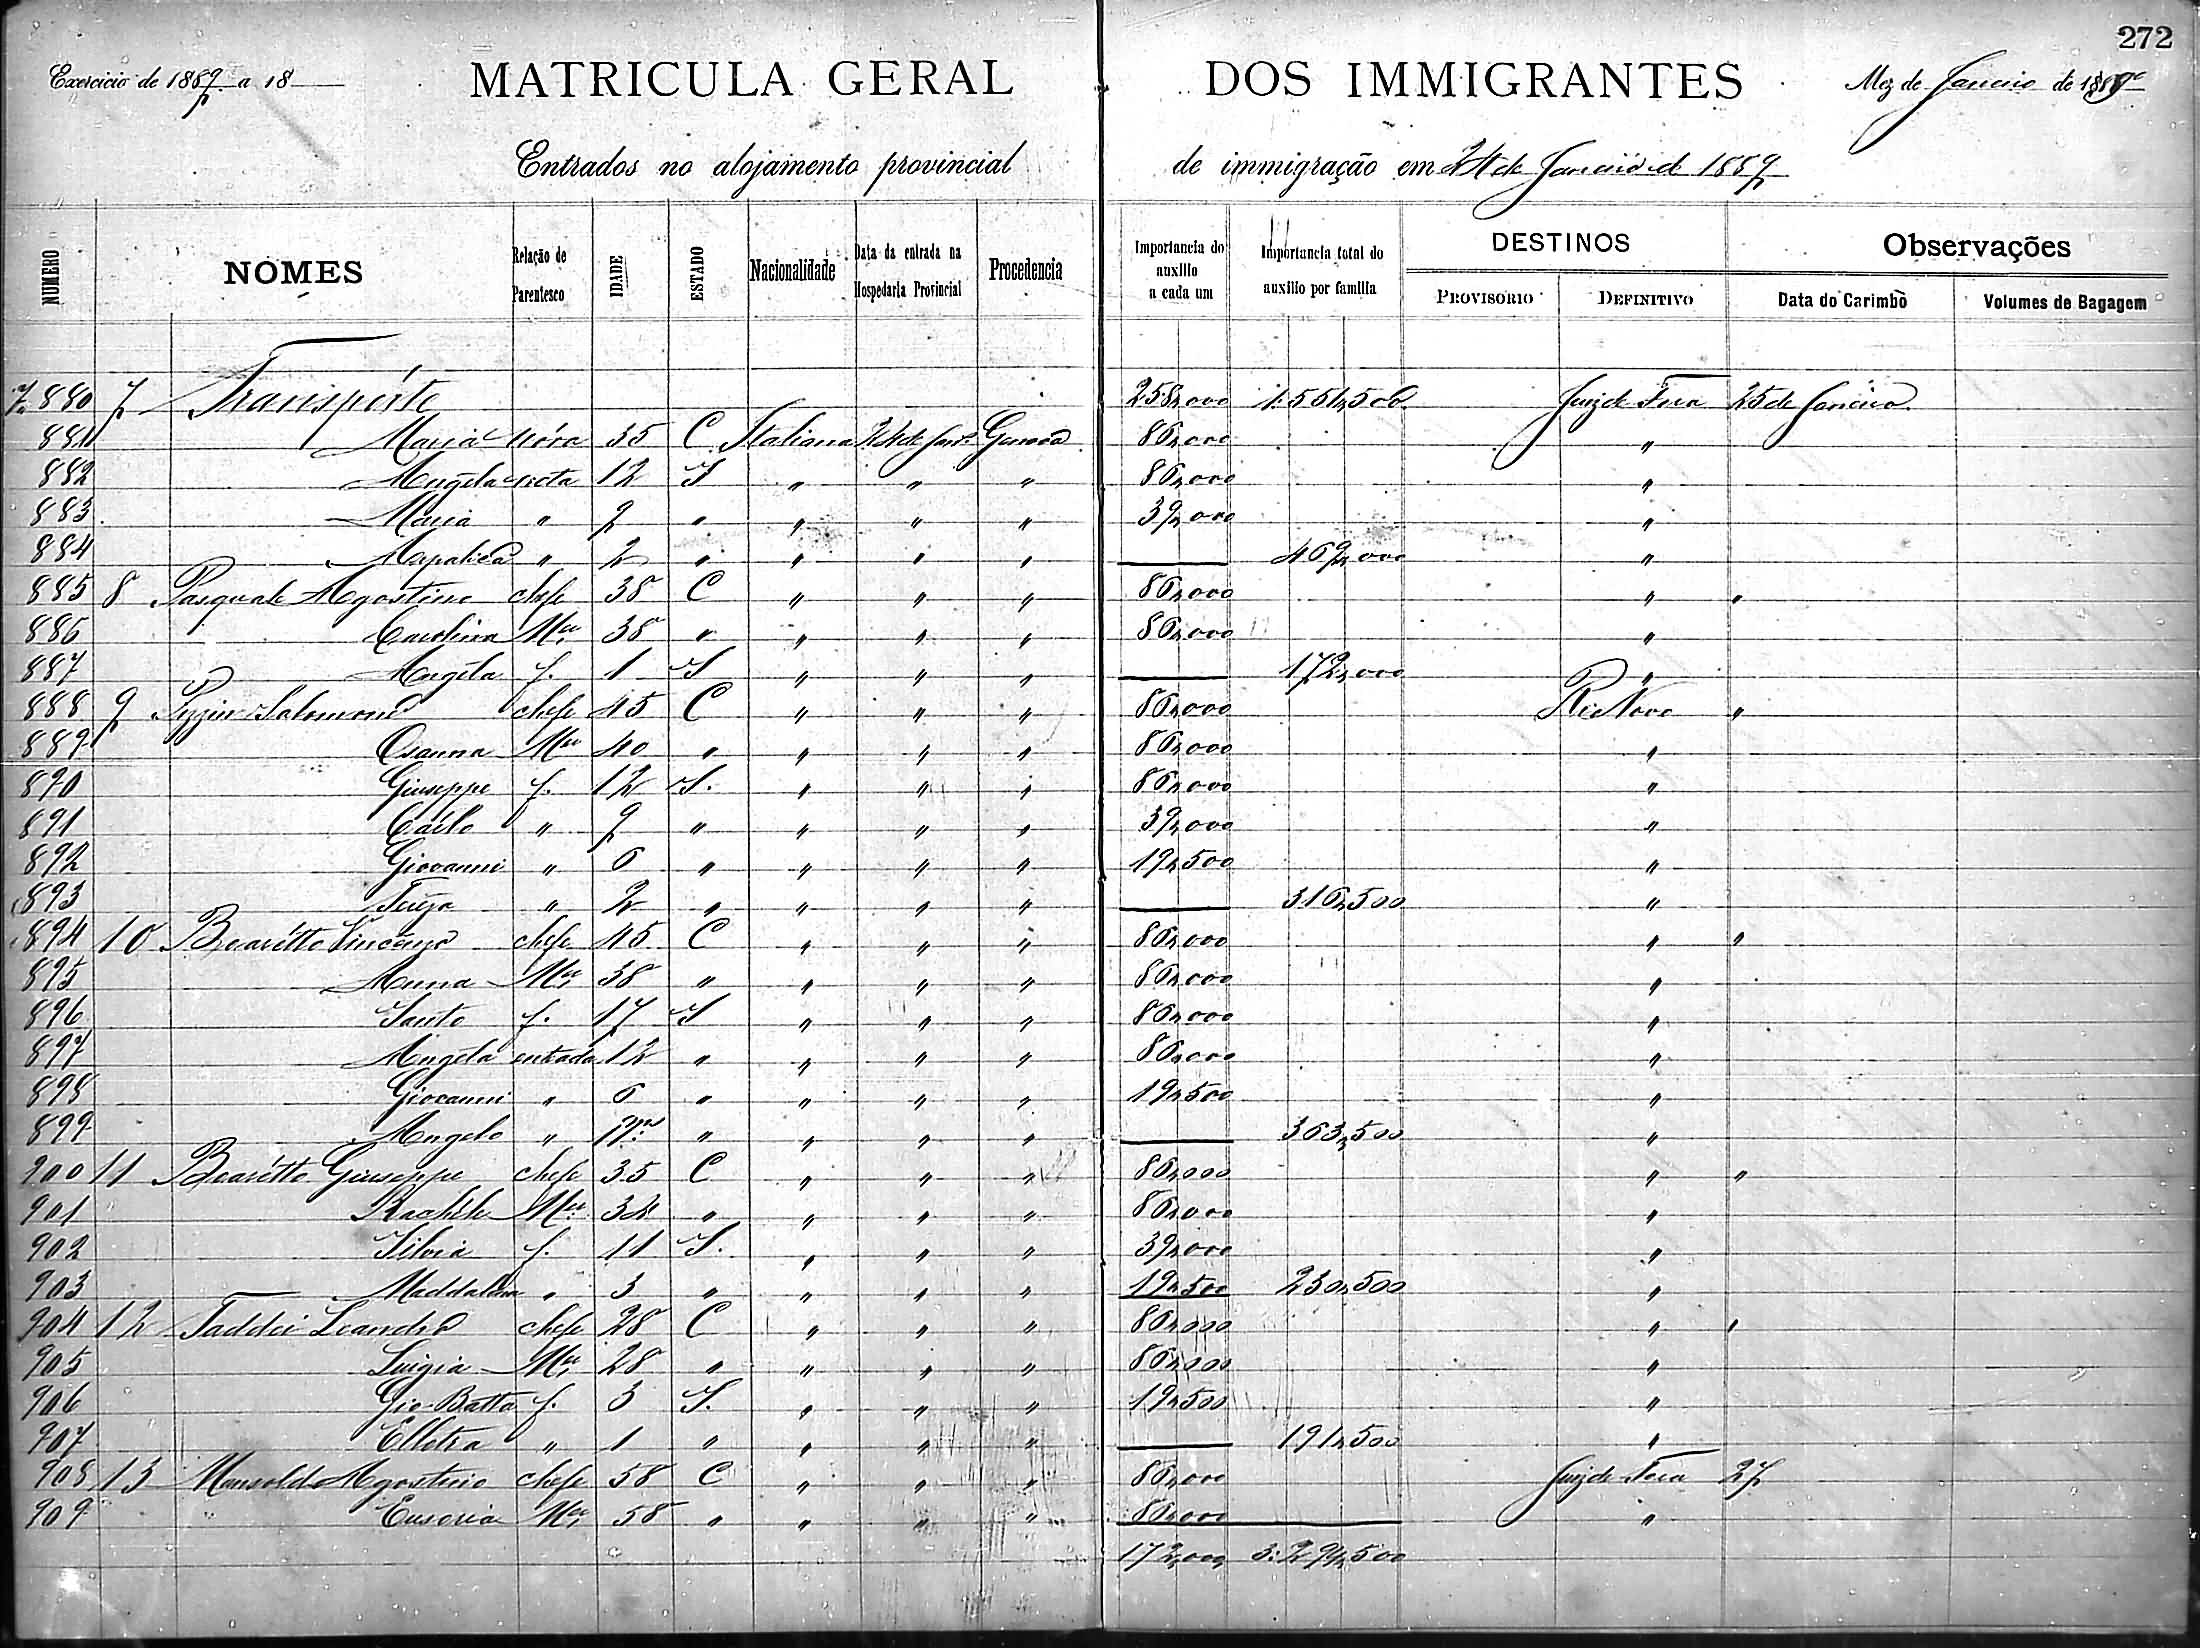 272
Exercicio de 1889 a 18
MATRICULA GERAL DOS IMMIGRANTES
Mez de Janeiro de 1889
Entrados no alojamento provincial de immigração em 24 de Janeiro de 1889
NUMERO NOMES Relação de Parentesco IDADE ESTADO Nacionalidade Data da entrada na Hospedaria Provincial Procedencia Importancia do auxilio a cada um Importancia total do auxilio por familia DESTINOS PROVISORIO DEFINITIVO Observações Data do Carimbo Volumes de Bagagem
7.880 7 Transpórte 258,000 1:551,500 Juiz de Fora 25 de Janeiro
881 Maria Nóra 35 C Italiana 24 de Janº Genova 86,000 "
882 Angela neta 12 S " " " 86,000 "
883 Maria " 9 " " " " 39,000 "
884 " 2 " " " " 469,000 "
885 8 Pasquale Agostino chefe 38 C " " " 86,000 " "
886 Carolina Mer 38 " " " " 86,000 "
887 Angela f. 1 S " " " 172,000 "
888 9 Pizzin Salomone chefe 45 C " " " 86,000 Rio Novo "
889 Osanna Mer 40 " " " " 86,000 "
890 Giuseppe f. 12 S. " " " 86,000 "
891 Carlo " 9 " " " " 39,000 "
892 Giovanni " 6 " " " " 19,500 "
893 " 2 " " " " 316,500 "
894 10 Bearétto Vincenzo chefe 45 C " " " 86,000 " "
895 Anna Mer 38 " " " " 86,000 "
896 Santo f. 17 S " " " 86,000 "
897 Angela enteada 12 " " " " 86,000 "
898 Giovanni " 6 " " " " 19,500 "
899 Angelo " " " " " 363,500 "
900 11 Bearétto Giuseppe chefe 35 C " " " 86,000 " "
901 Rachele Mer 34 " " " " 86,000 "
902 Silvia f. 11 S. " " " 39,000 "
903 Maddalena " 3 " " " " 19,500 230,500 "
904 12 Taddei Leandro chefe 28 C " " " 86,000 " "
905 Luigia Mer 28 " " " " 86,000 "
906 Gio-Batta f. 3 S. " " " 19,500 "
907 Elletra " 1 " " " " 191,500 "
908 13 Agostino chefe 58 C " " " 86,000 Juiz de Fora 27
909 Mer 58 " " " " 86,000 "
172,000 3:294,500